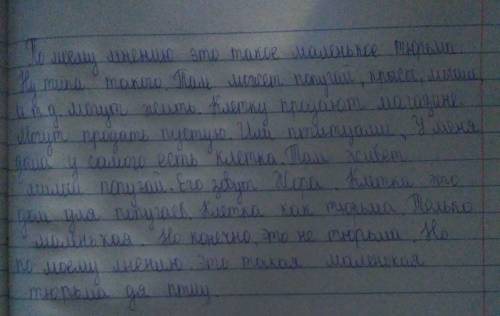 По моему мнению это такое маленькое тюрьма.
Ну типа такого. Там может попугай, крыса, мыши
и т д могут жить. Клетку продают магазине.
Могут продать пустую. Или с У меня
дома у самого есть клетка. Там живет
милий попугай. Его зовут Кора. Клетка это
дом для попугаев. Клетка как тюрьма. Только
маленькая. Но конечно это не тюрьма. Но
по моему мнению. Это такая маленькая
тюрьма дя птиц.